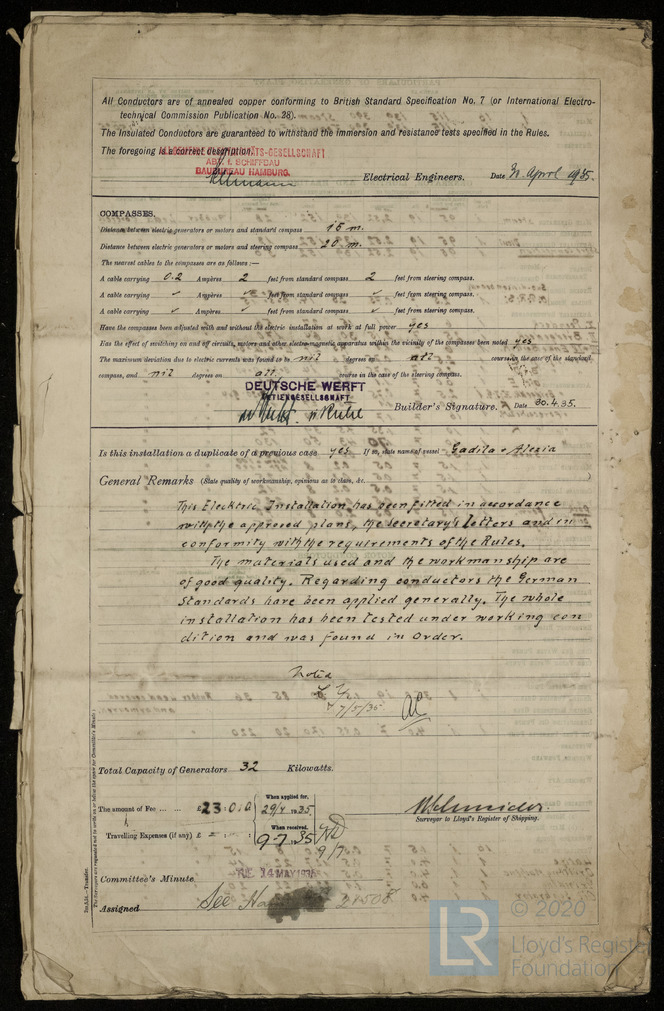 All Conductors are of annealed copper conforming to British Standard Specification No. 7 (or International Electro-
technical Commission Publication No. 28).
The Insulated Conductors are guaranteed to withstand the immersion and resistance tests specified in the Rules.
The foregoing is a correct description.
TÄTS-GESELLSCHAFT
ABT. f. SCHIFFBAU
BAUBUREAU HAMBURG.
Electrical Engineers. Date April 1935.
COMPASSES.
Distance between electric generators or motors and standard compass 15 m.
Distance between electric generators or motors and steering compass 20 m.
The nearest cables to the compasses are as follows:—
A cable carrying 0.2 Ampères 2 feet from standard compass 2 feet from steering compass.
A cable carrying ✓ Ampères ✓ feet from standard compass ✓ feet from steering compass.
A cable carrying ✓ Ampères ✓ feet from standard compass ✓ feet from steering compass.
Have the compasses been adjusted with and without the electric installation at work at full power yes
Has the effect of switching on and off circuits, motors and other electro-magnetic apparatus within the vicinity of the compasses been noted yes
The maximum deviation due to electric currents was found to be nil degrees on all course in the case of the standard
compass, and nil degrees on all course in the case of the steering compass.
DEUTSCHE WERFT
AKTIENGESELLSCHAFT
Builder's Signature. Date 30.4.35.
Is this installation a duplicate of a previous case yes If so, state name of vessel Gadila & Alexia
General Remarks (State quality of workmanship, opinions as to class, &c. )
This Elecktric Installation has been fitted in accordance
with the approved plans, the Secretary's letters and in
conformity with the requirements of the Rules.
The materials used and the workmanship are
of good quality. Regarding conductors the German
Standards have been applied generally. The whole
installation has been tested under working con
dition and was found in Order.
Noted
7/5/35
Total Capacity of Generators 32 Kilowatts.
The amount of Fee ... ... £23:0:0 When applied for, 29/4 1935.
Travelling Expenses (if any) £ When received, 9-7-1935
9/7
Surveyor to Lloyd's Register of Shipping.
Committee's Minute TUE 14 MAY 1935
Assigned See
© 2020
LR
Lloyd's Register
Foundation